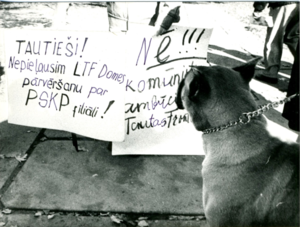 TAUTIEŠI!
Nepieļausim LTF Domes
pārvēršanu par
PSKP filiāli!
Nē!!!
komunistu
ambīc
Tautas